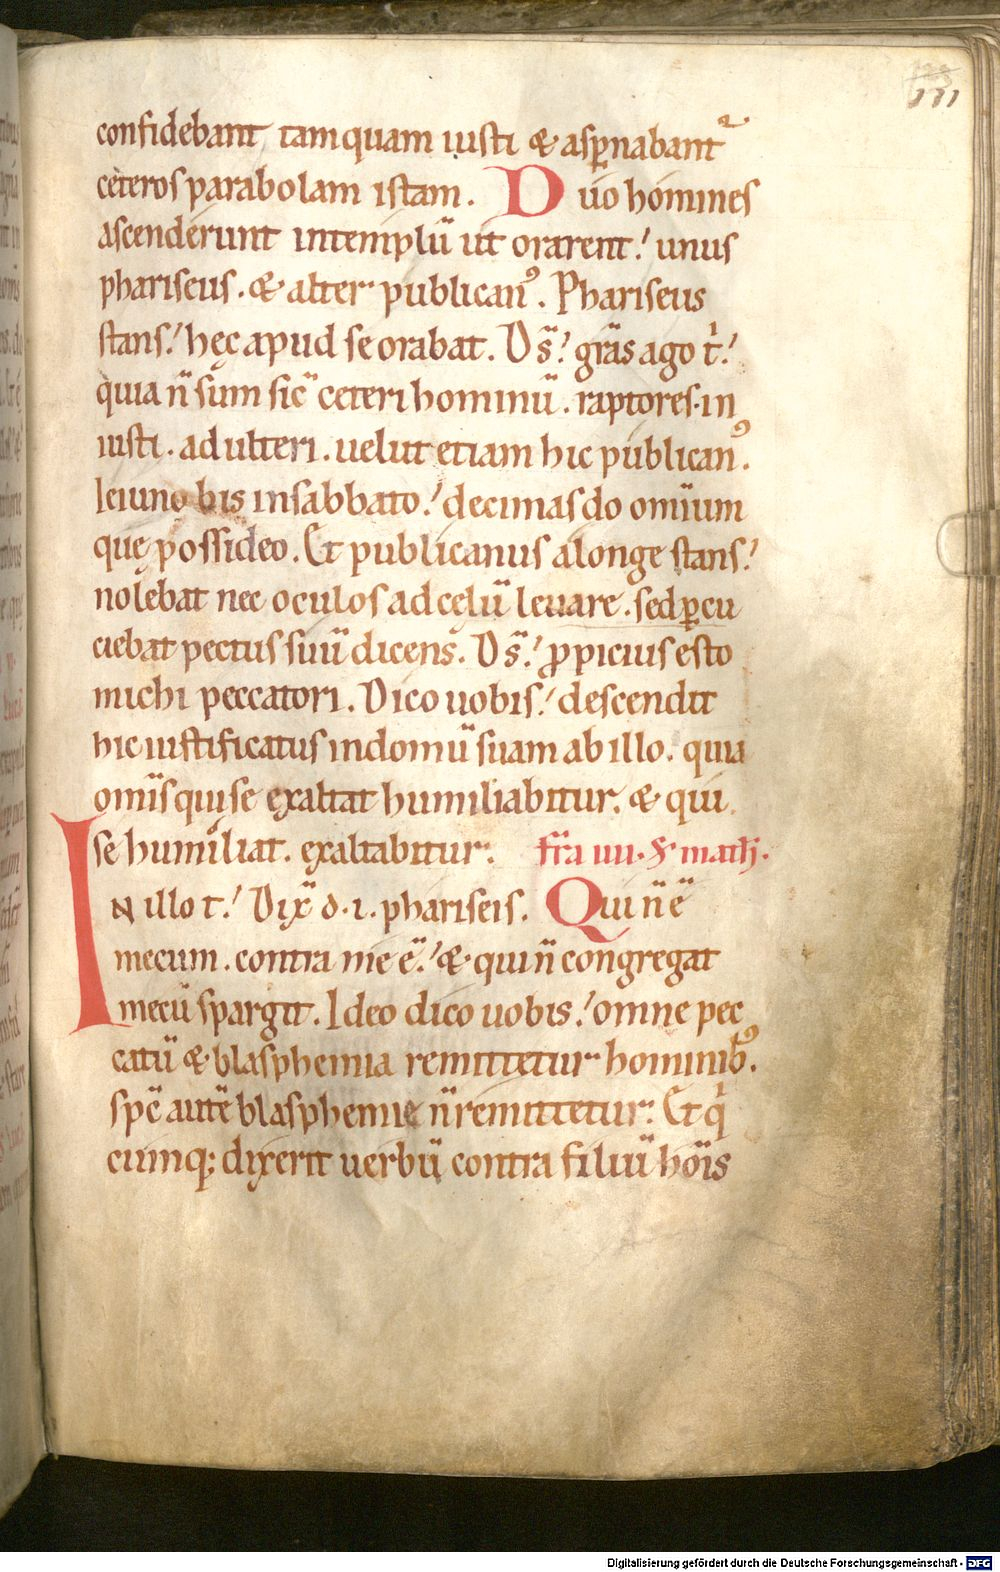 111
confidebant tamquam iusti & asp̱nabant᷑
ceteros parabolam istam. Duo homines
ascenderunt intemplū ut orarent.' unus
phariseus. & alter publicanꝰ. Phariseus
stans.' hęc apud se orabat. Ds̄.' grās ago t̍.'
quia n̄ sum sic̄ ceteri hominū. raptores. in
iusti. adulteri. uelut etiam hic publicanꝰ.
Ieiuno bis insabbato.' decimas do om̄ium
quę possideo. Et publicanus alonge stans.'
nolebat nec oculos adcęlū leuare. sed ꝑcu
ciebat pectus suū dicens. Ds̄.' ꝓpicius esto
michi peccatori. Dico uobis.' descendit
hic iustificatus indomū suam ab illo. quia
om̄is qui se exaltat humiliabitur. & qui
se humiliat. exaltabitur. fr̄a iiii. S. math.
IN illo t.' Dix̄ d. i. phariseis. Qui n̄ ē
mecum. contra me ē.' & qui n̄ congregat
mecū spargit. Ideo dico uobis.' omne pec
catū & blasphemia remittetur hominibꝰ.
spc̄ autē blasphemię n̄ remittetur. Et qͥ
cumq; dixerit uerbū contra filiū hōis
Digitalisierung gefördert durch die Deutsche Forschungsgemeinschaft - DFG